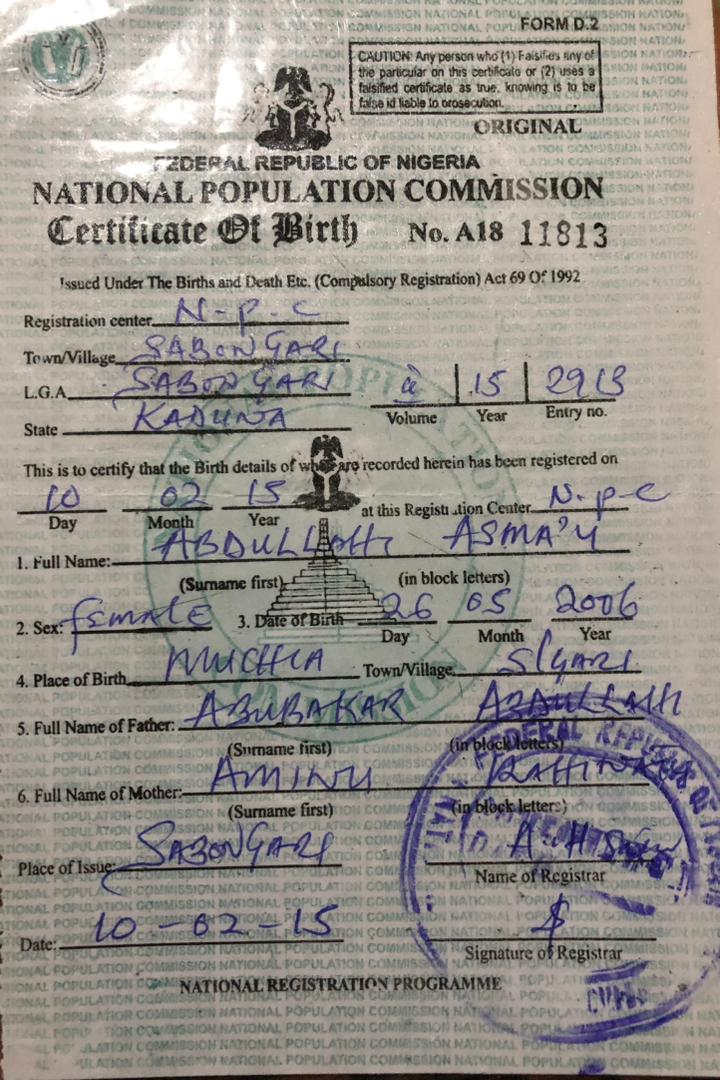 FORM D.2
CAUTION: Any person who (1) Falsifies any of
the particular on this certificate or (2) uses a
falsified certificate as true, knowing is to be
false id liable to prosecution.
ORIGINAL
FEDERAL REPUBLIC OF NIGERIA
NATIONAL POPULATION COMMISSION
Certificate Of Birth No. A18 11813
Issued Under The Births and Death Etc. (Compulsory Registration) Act 69 Of 1992
Registration center N-p-c
Town/Village SABON GARI
L.G.A SABON GARI
15 2913
Volume Year Entry no.
State KADUNA
This is to certify that the Birth details of whom are recorded herein has been registered on
10 02 15 at this Registration Center N-p-c
Day Month Year
1. Full Name: ABDULLAHI ASMA'U
(Surname first) (in block letters)
2. Sex: female 3. Date of Birth 26 05 2006
Day Month Year
4. Place of Birth MUCHIA Town/Village S/GARI
5. Full Name of Father: ABUBAKAR ABDULLAHI
(Surname first) (in block letters)
6. Full Name of Mother: AMINU
(Surname first) (in block letters)
Place of Issue: SABON GARI
Name of Registrar
Date: 10-02-15
Signature of Registrar
NATIONAL REGISTRATION PROGRAMME